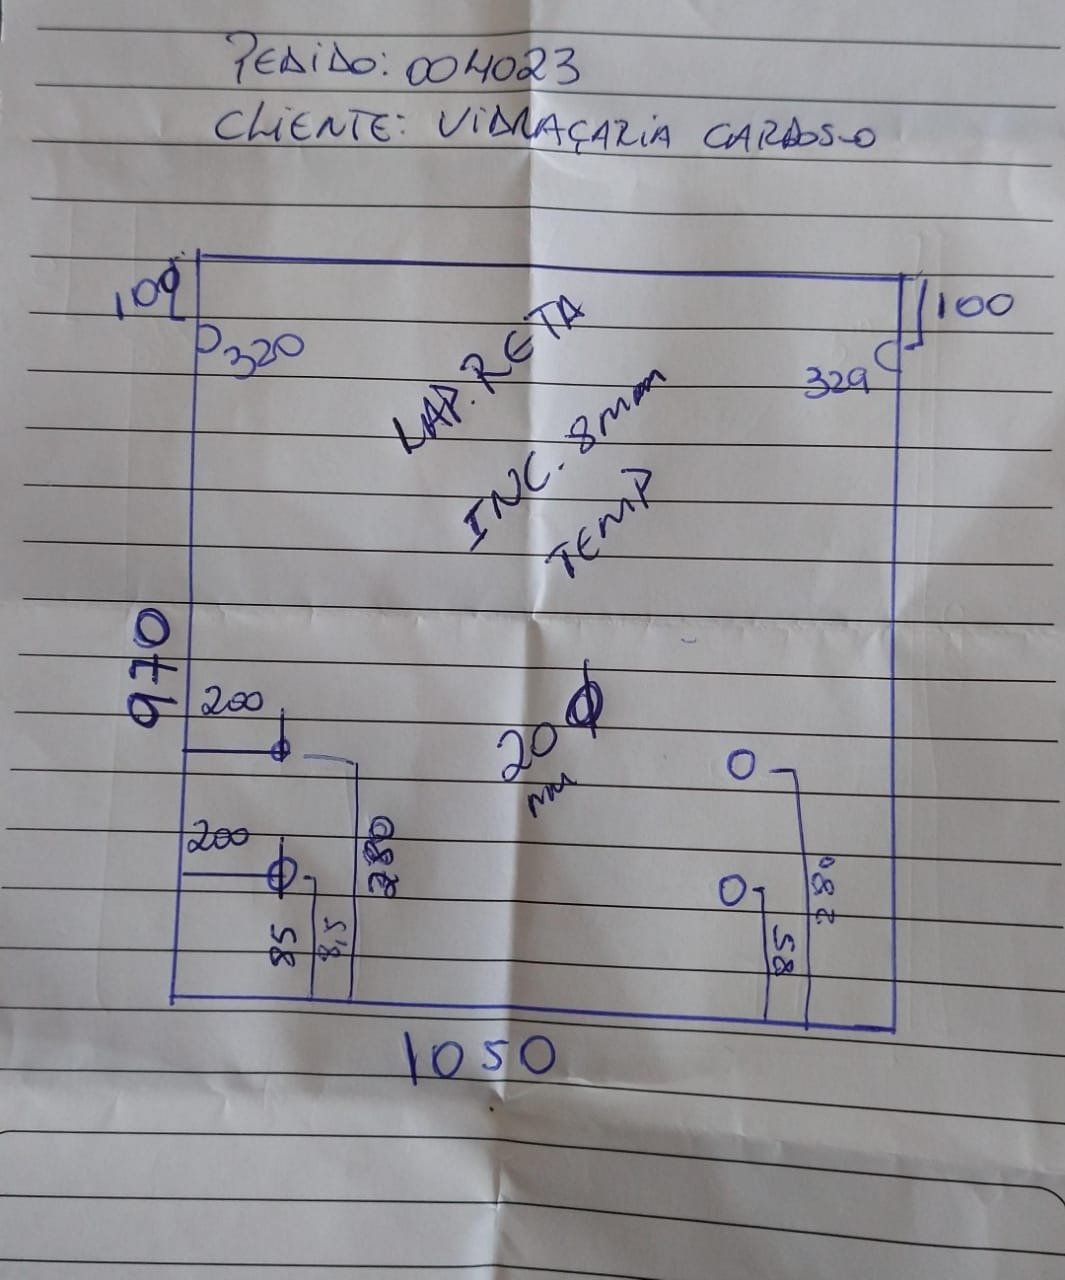 PEDIDO: 004023
CLIENTE: VIDRAÇARIA CARDOSO
100
100
320
329
LAP. RETA
INC. 8mm
TEMP
970
200
20 Φ
mm
200
280
280
85
8,5
85
1050